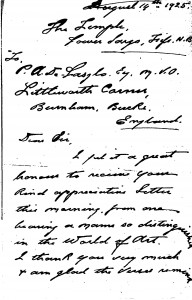 August 14th 1925.
The Temple,
Lower Largo, Fife. N.B.
To,
P. A. De Laszlo. Esq. M.V.O
Littleworth Corner,
Burnham, Bucks.
England.
Dear Sir,
I felt it a great
honour to receive your
kind appreciative letter
this morning, from one
bearing a name so distinguished
in the World of Art.
I thank you very much
& am glad the verses